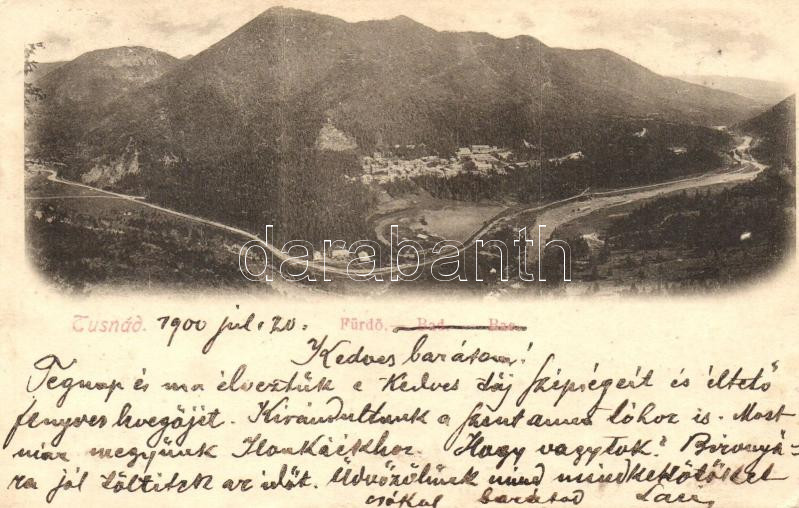 darabanth
Tusnád. 1900 júl. 20.
Fürdő. Bad. Bae.
Kedves barátom!
Tegnap és ma élveztük e kedves táj szépségeit és éltető
fenyves levegőjét. Kirándultunk a szent anna tóhoz is. Most
már megyünk Ilonkáékhoz. Hogy vagytok? Bizonyá-
ra jól töltitek az időt. Üdvözölünk mind mindkettőtöket
csókol barátod